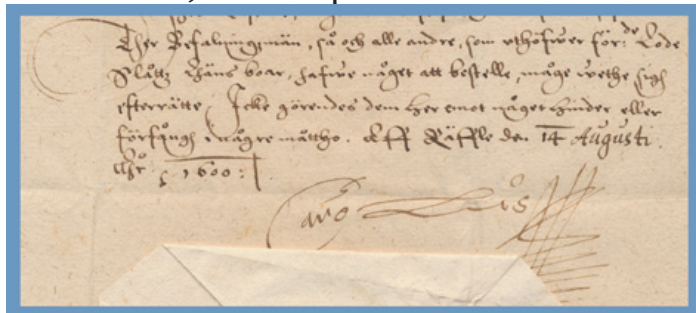 Ther Befalningzmän, så och alle andre, som uthöfwer för:de Lode
Slåttz Läns boar, hafwe något att bestelle, måge wethe sigh
efterrätte, Icke görendes dem her emot något hinder eller
förfångh i någre måttho. Aff Räffle den 14 Augusti
Åhr 1600:
Carolus